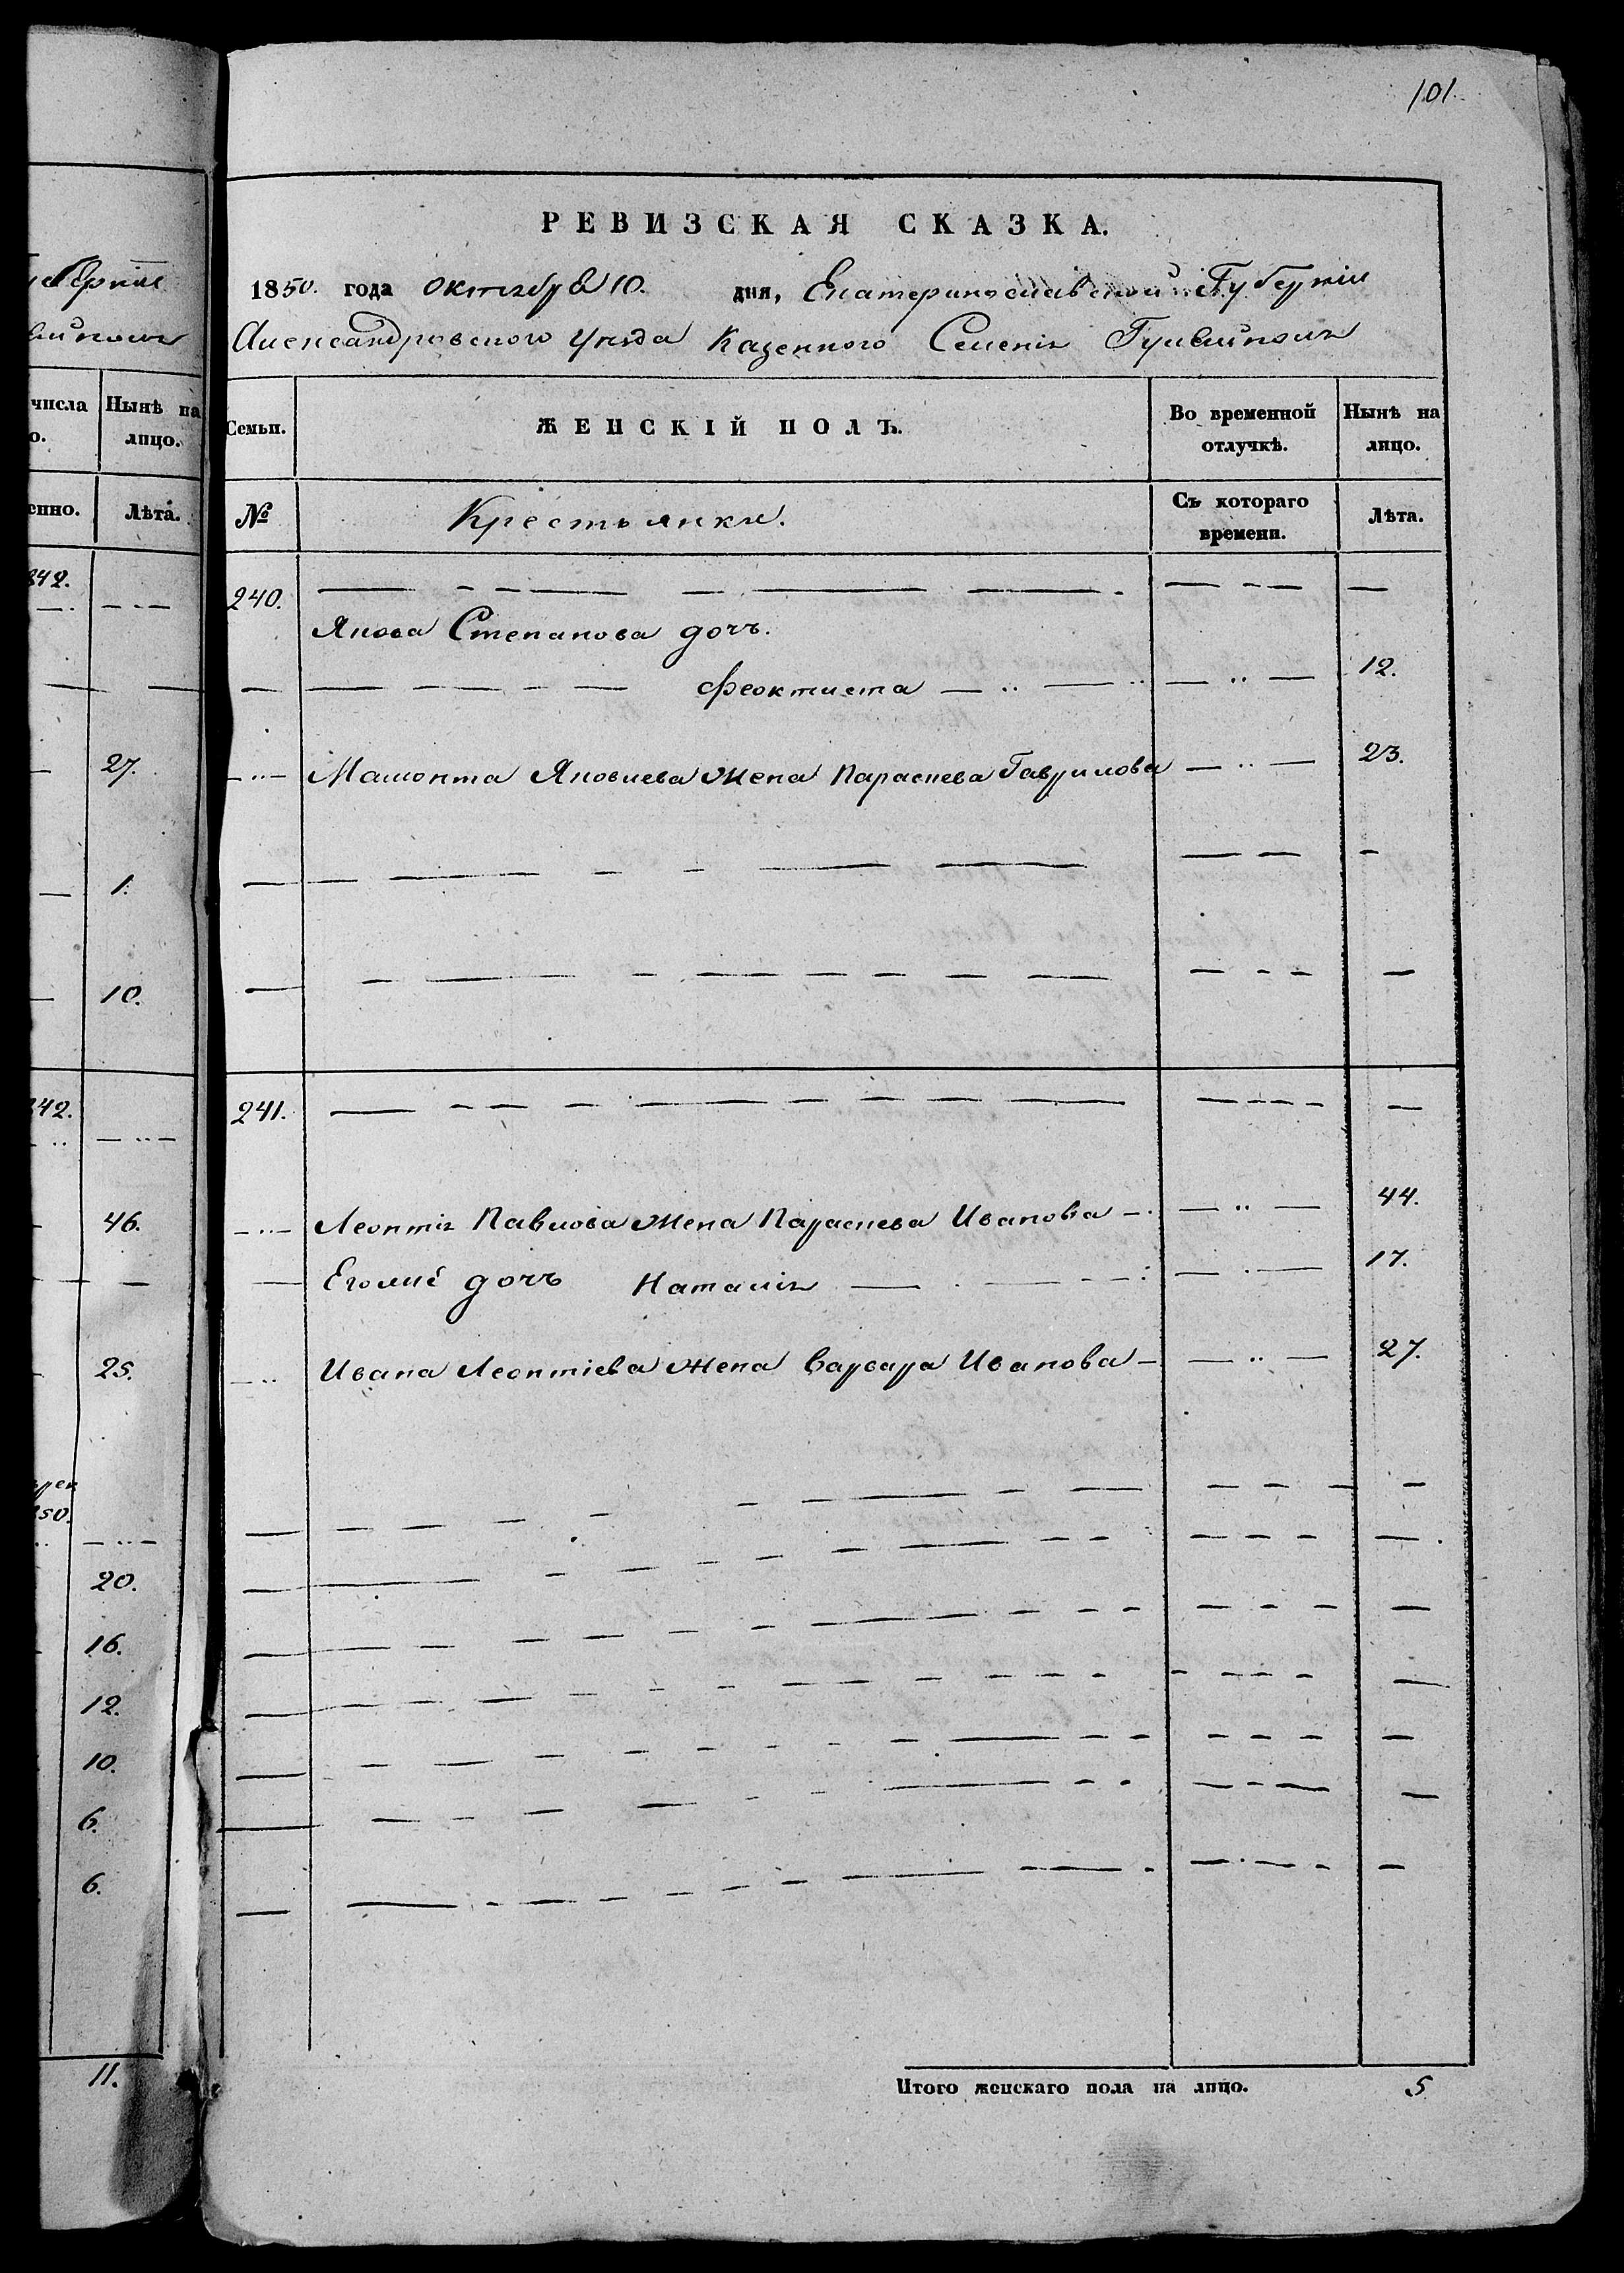 101
губерніи
РЕВИЗСКАЯ СКАЗКА.
1850. года Октября 10. дня, Екатеринославской Губерніи
Александровского Уезда Казенного Селенія Гуляйполя
числа Нынѣ на
о. лицо.
енно. Лѣта.
842.
27.
1.
10.
842.
46.
25.
850.
20.
16.
12.
10.
6.
6.
11.
Семьи. ЖЕНСКІЙ ПОЛЪ. Во временной отлучкѣ. Нынѣ на лицо.
№ Крестьянки. Съ котораго времени. Лѣта.
240. — — — — — — — — —
Якова Степанова дочь.
— — — — Феоктиста — „ — — „ — 12.
— „ — Мамонта Яковлева жена Параскева Гаврилова — „ — 23.
— — — — — — — — —
— — — — — — — — —
241. — — — — — — — — —
— „ — Леонтія Павлова жена Параскева Иванова — — „ — 44.
— Еголиё дочь Наталія — — — — — 17.
— „ Ивана Леонтіева жена Варвара Иванова — — „ — 27.
— — — — — — — — —
— — — — — — — — —
— — — — — — — — —
— — — — — — — — —
— — — — — — — — —
— — — — — — — — —
— — — — — — — — —
Итого женскаго пола на лицо. 5